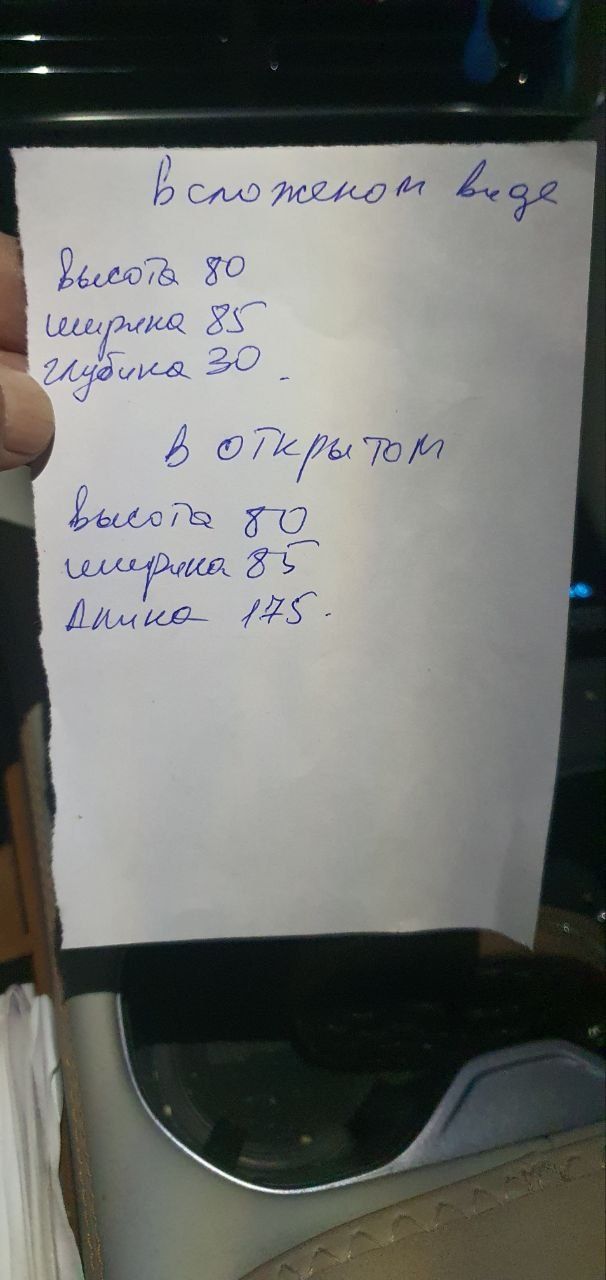 В сложеном виде
Высота 80
ширина 85
глубина 30.
В открытом
Высота 80
ширина 85
Длина 175.